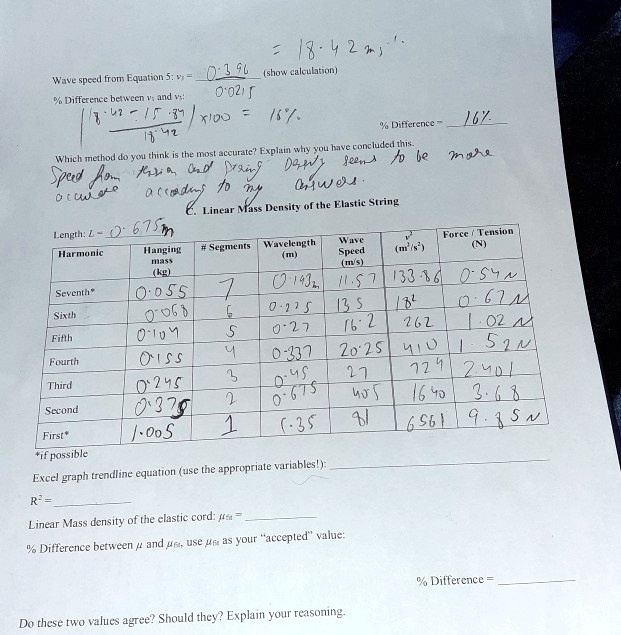 = 18.42 m/s
Wave speed from Equation 5: v₁ = 0.396 (show calculation)
0.0215
% Difference between v₁ and v₅:
|18.42 - 15.84| / 18.42 | x100 = 16%
% Difference = 16%
Which method do you think is the most accurate? Explain why you have concluded this.
Speed from tension and string Density seems to be more
accurate according to my answers.
C. Linear Mass Density of the Elastic String
Length: L = 0.675m
Harmonic Hanging mass (kg) # Segments Wavelength (m) Wave Speed (m/s) v² (m²/s²) Force / Tension (N)
Seventh* 0.055 7 0.193 11.57 133.86 0.54N
Sixth 0.068 6 0.225 13.5 182 0.67N
Fifth 0.104 5 0.27 16.2 262 1.02N
Fourth 0.155 4 0.337 20.25 410 1.52N
Third 0.245 3 0.45 27 724 2.401
Second 0.375 2 0.675 40.5 1640 3.68
First* 1.005 1 1.35 81 6561 9.85N
*if possible
Excel graph trendline equation (use the appropriate variables!):
R² =
Linear Mass density of the elastic cord: μfit =
% Difference between μ and μfit, use μfit as your "accepted" value:
% Difference =
Do these two values agree? Should they? Explain your reasoning.